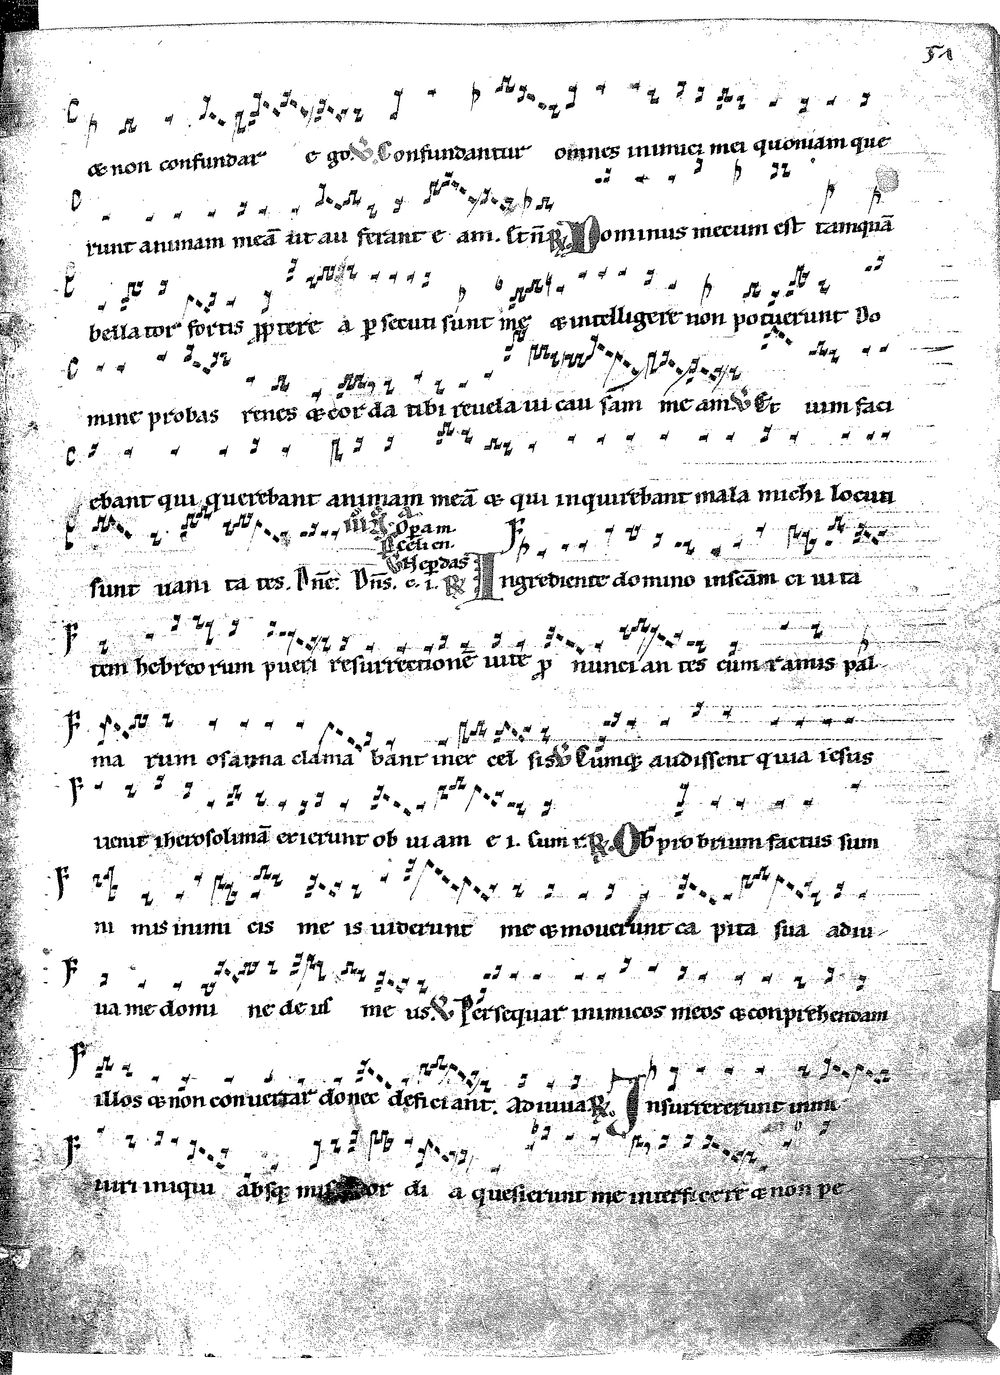 51
& non confundar e go ℣ Confundantur omnes inimici mei quoniam que
runt animam meā ut au ferant e am. Et ñ ℟ Dominus mecum est tamquā
bella tor fortis ꝓpterе a ꝑ secuti sunt me & intelligere non potuerunt Do
mine probas renes & cor da tibi reuela ui cau sam me am ℣ Et uim faci
ebant qui querebant animam meā & qui inquirebant mala michi locuti
oꝑa m.
celi en.
sunt uani ta tes. Dñe. Dñs. e. i. ℟ Ingrediente domino inscām ci uita
tem hebreo rum pueri resurrectionē uite ꝓ nunci an tes cum ramis pal
ma rum osanna clama bant inex cel sis ℣ Cumq; audissent quia iesus
uenit iherosolimā exierunt ob ui am e i. Cum r. ℟ Obpro brium factus sum
ni mis inimi cis me is uiderunt me & mouerunt ca pita sua adiu
ua me domi ne de us me us ℣ Persequar inimicos meos & conprehendam
illos & non conuertar donec deficiant. Adiuua ℟ Insurrexerunt inme
uiri iniqui absq; mis or di a quesierunt me interficere & non pe